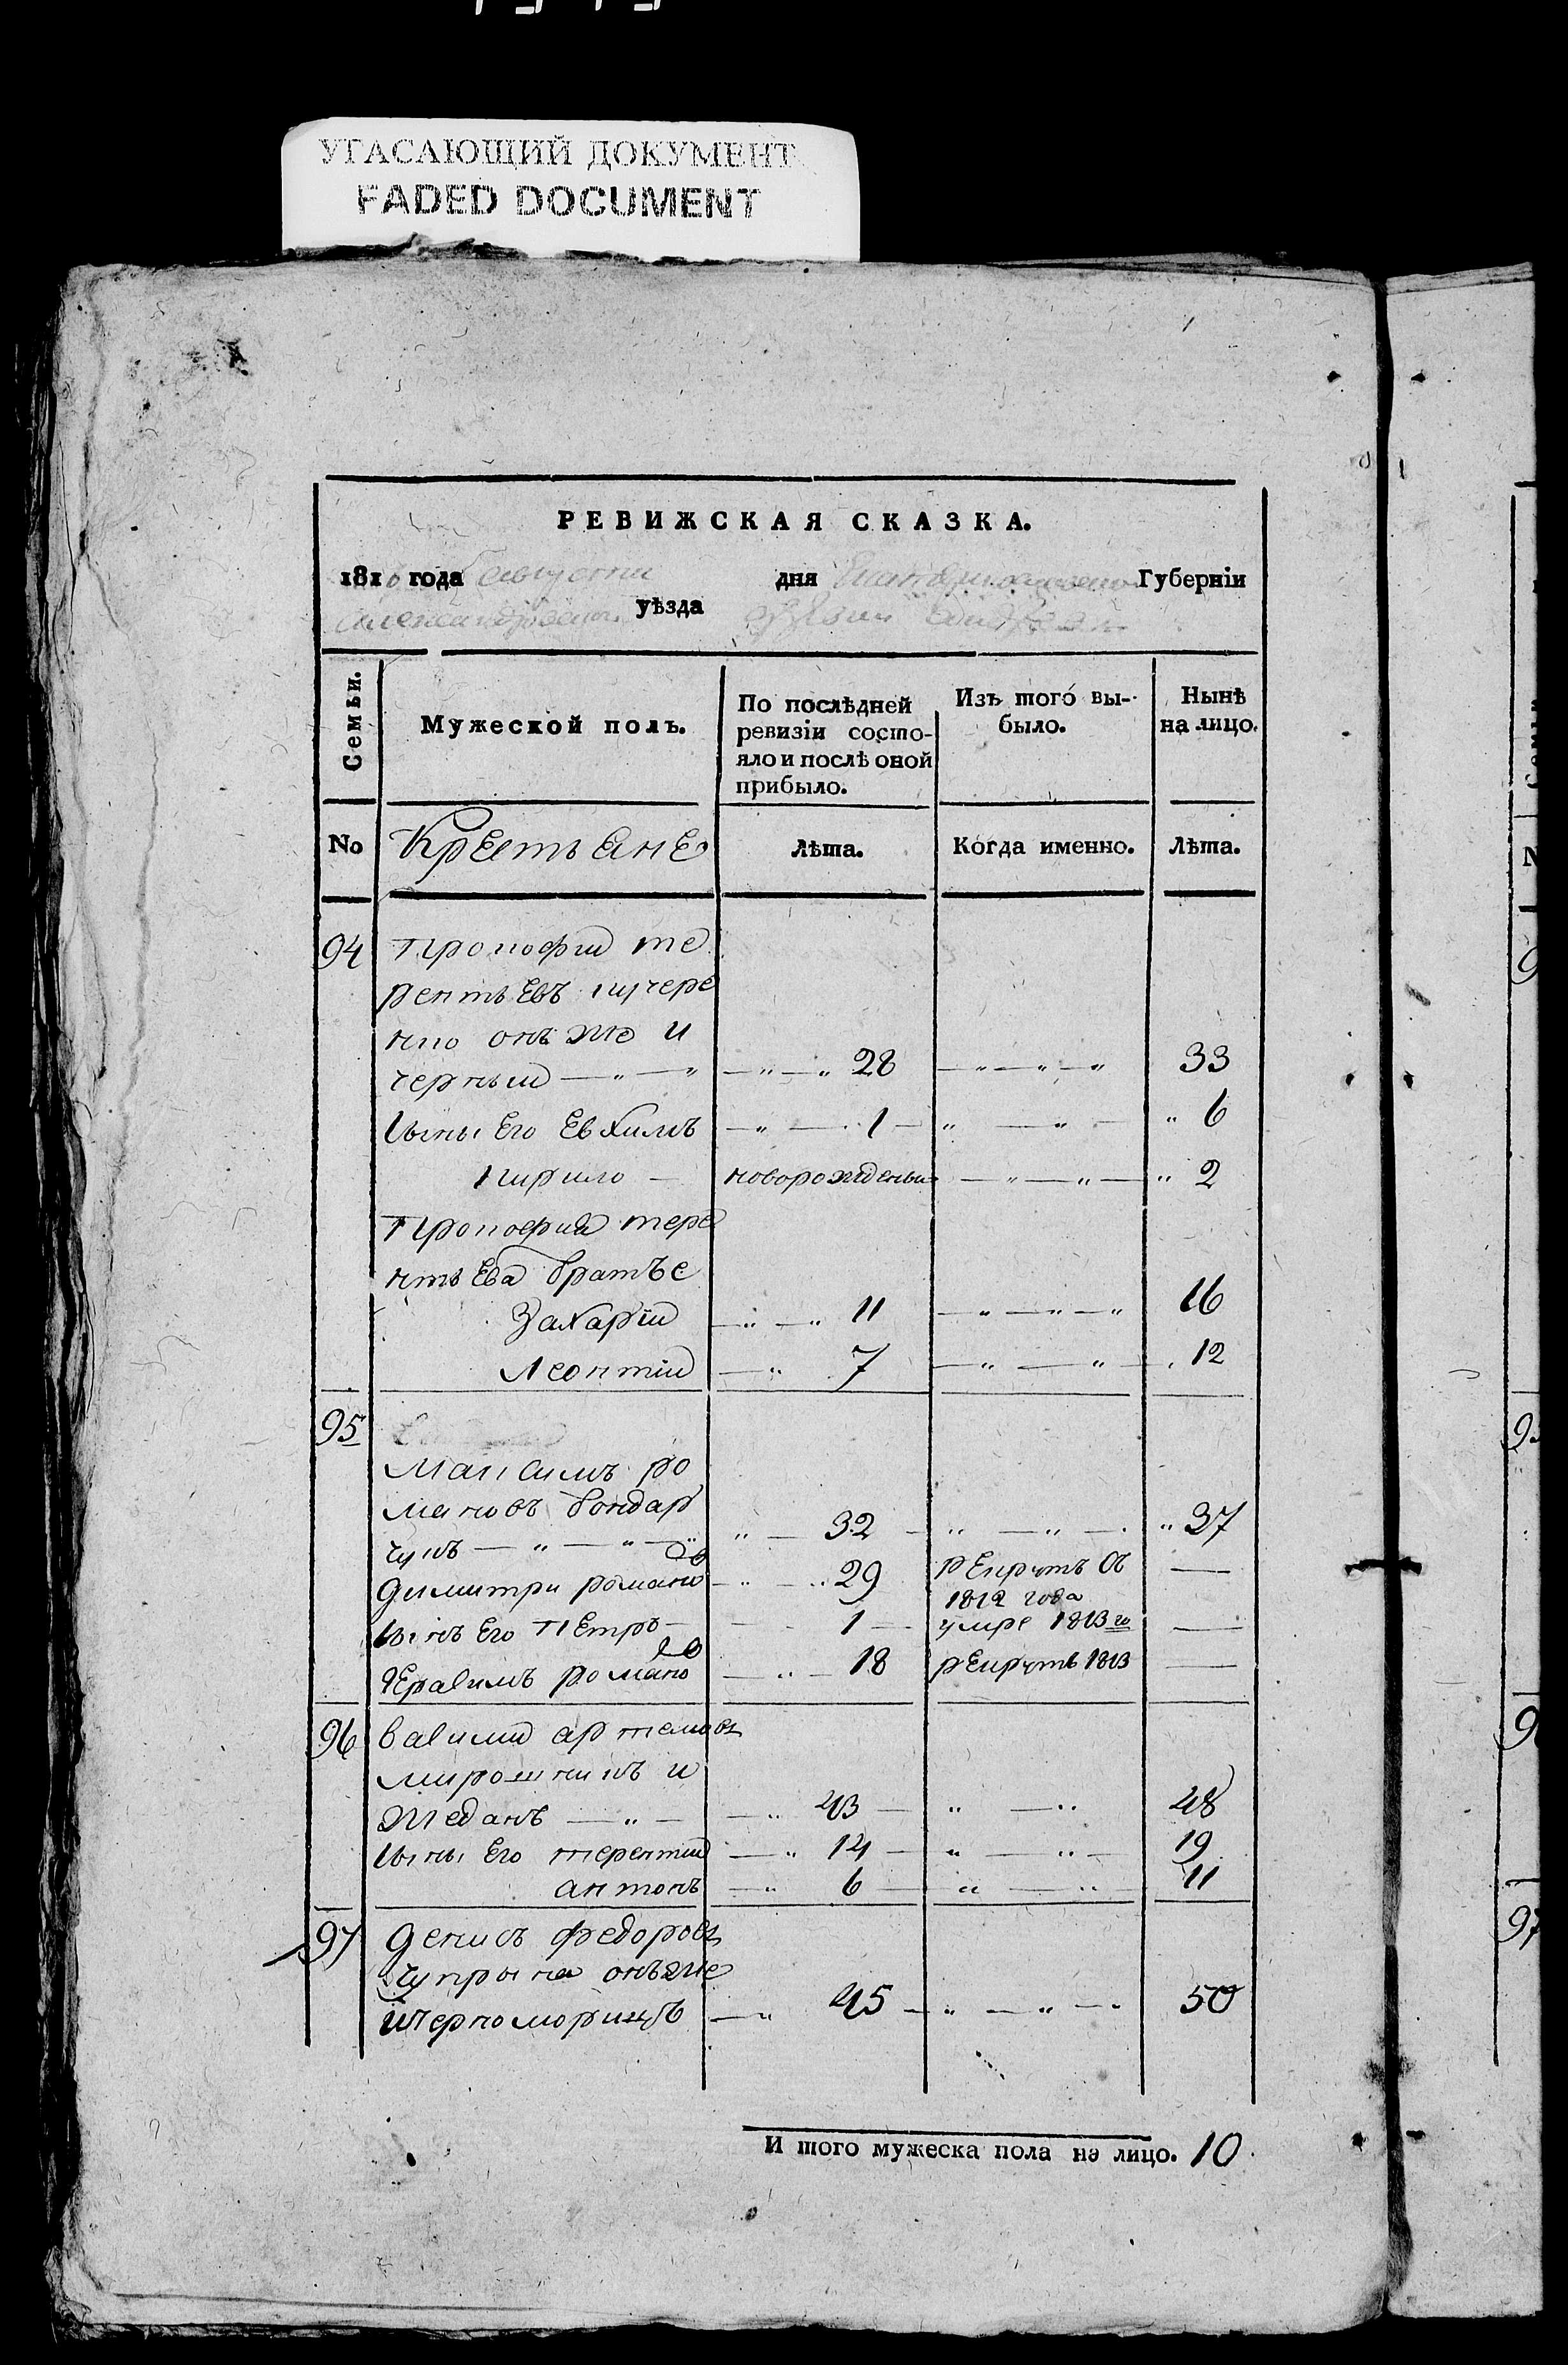 УГАСАЮЩИЙ ДОКУМЕНТ
FADED DOCUMENT
РЕВИЖСКАЯ СКАЗКА.
1816 года августа дня Губерніи
уѣзда
Семьи.
Мужеской полъ.
По послѣдней ревизіи состо-
яло и послѣ оной
прибыло.
Изъ того вы-
было.
Нынѣ
на лицо.
No Крестьяне Лѣта. Когда именно. Лѣта.
94 Прокофий те
рентьевъ кучере
нко онъ же и
черный — „ — „ — „ — „ 28 — „ — „ — „ 33
Сыны Его Евхимъ — „ — 1 — „ — „ — „ 6
Кирило — новорожденый — „ — „ — „ 2
Прокофия тере
нтьева братье
Захарій — „ — „ 11 — „ — „ — „ 16
Леонтій — „ 7 — „ — „ — 12
95
Максимъ ро
мановъ бондар
чукъ — „ — „ — „ „ — 32 — „ — „ — „ 37
Димитри романовъ — „ — „ 29 рекрутъ съ —
1812 года
Сынъ Его Петръ — 1 — умре 1813 го —
Герасимъ романовъ — „ — 18 рекрутъ 1813 —
96 Василий артемовъ
мирошникъ и
жеданъ — „ — — „ 43 — „ — „ 48
Сыны Его терентий — „ 14 — „ — „ — 19
антонъ — „ 6 — „ — „ 11
97 Денисъ федоровъ
Чупрына онъ же
и черноморицъ — „ 45 — „ — „ — „ 50
И того мужеска пола на лицо. 10.